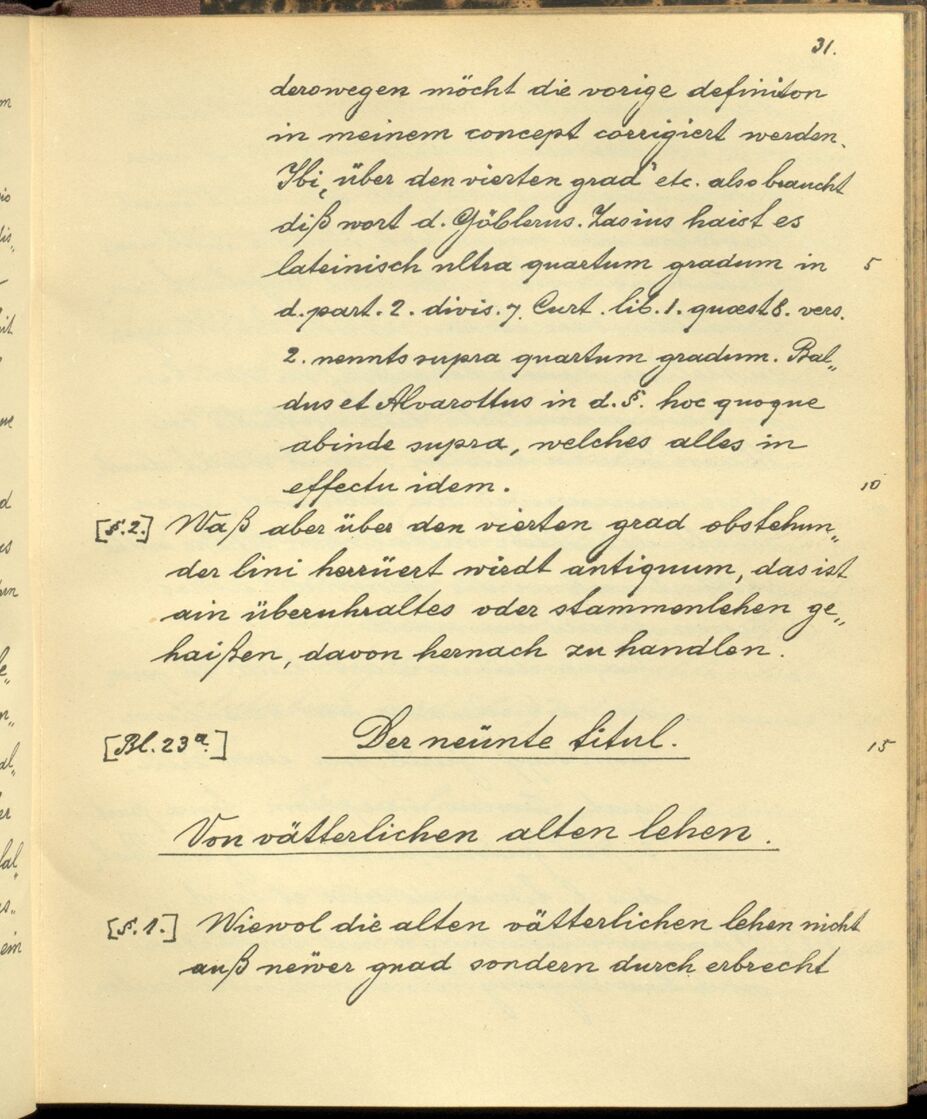 31.
derowegen möcht die vorige definiton
in meinem concept corrigiert werden.
Ibi „über den vierten grad" etc. also braucht
diß wort d. Göblerus. Zasius haist es
lateinisch ultra quartum gradum in 5
d. part. 2. divis. 7. Curt. lib. 1. quæst 8. vers.
2. nennts supra quartum gradum. Bal„
dus et Alvarottus in d. §. hoc quoque
abinde supra, welches alles in
effectu idem. 10
[§. 2.] Waß aber über den vierten grad obstehun„
der lini herrüert wirdt antiquum, das ist
ain überuhraltes oder stammenlehen ge„
haißen, davon hernach zu handlen.
[Bl. 23a.] Der neünte titul. 15
Von vätterlichen alten lehen.
[§. 1.] Wiewol die alten vätterlichen lehen nicht
auß newer gnad sondern durch erbrecht